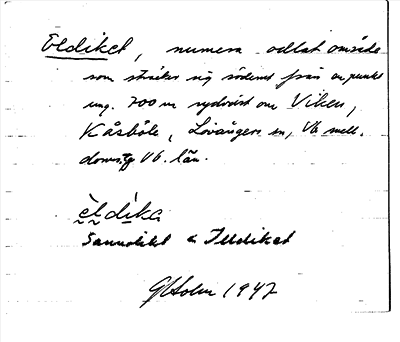 Eldiket, numera odlat område
som sträcker sig söderut från en punkt
ung. 700 m sydväst om Viken,
Kåsböle, Lövångers sn, Vb mell.
doms. Vb. län.
èldika
Sannolikt < Illdiket
GHolm 1947